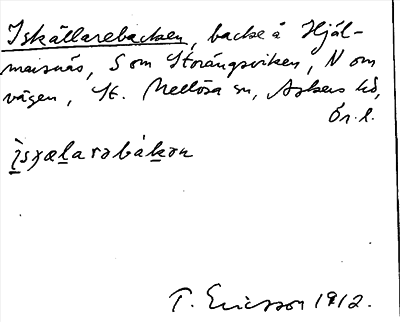 Iskällarebacken, backe å Hjäl-
marsnäs, S om Storängsviken, N om
vägen, St. Mellösa sn, Askers hd,
Ör. l.
T. Ericsson 1912.